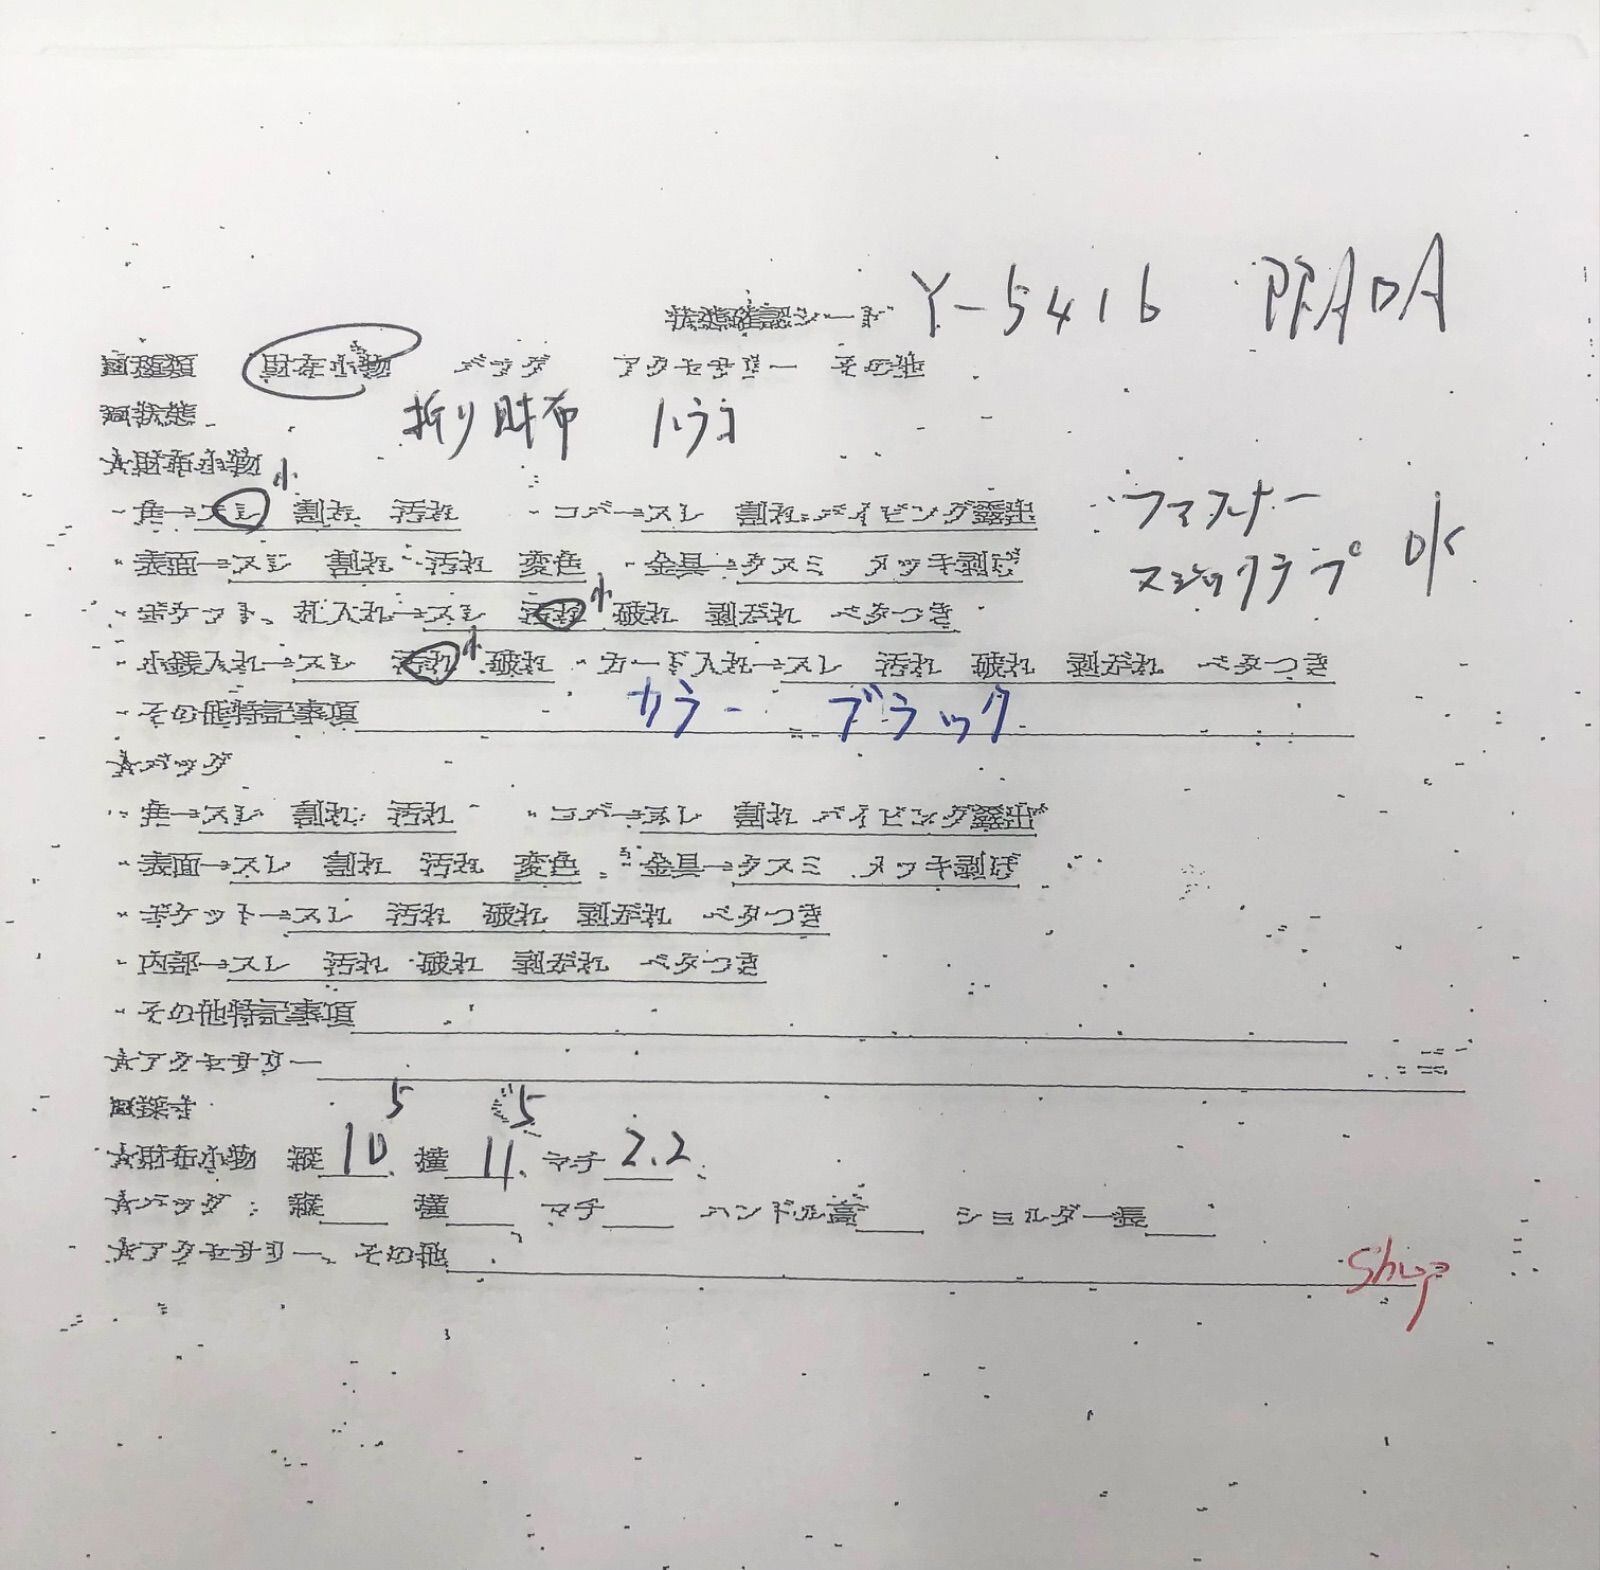 状態確認シート Y-5416 PRADA
□種類 財布小物 バッグ アクセサリー その他
□状態 折り財布
★財布小物
・角→スレ 小 割れ 汚れ ・コバ→スレ 割れ パイピング露出 ファスナー
・表面→スレ 割れ 汚れ 変色 ・金具→クスミ メッキ剥げ OK
・ポケット、札入れ→スレ 汚れ 小 破れ 剥がれ ベタつき
・小銭入れ→スレ 汚れ 小 破れ ・カード入れ→スレ 汚れ 破れ 剥がれ ベタつき
・その他特記事項 カラー ブラック
★バッグ
・角→スレ 割れ 汚れ ・コバ→スレ 割れ パイピング露出
・表面→スレ 割れ 汚れ 変色 ・金具→クスミ メッキ剥げ
・ポケット→スレ 汚れ 破れ 剥がれ ベタつき
・内部→スレ 汚れ 破れ 剥がれ ベタつき
・その他特記事項
★アクセサリー
□採寸
★財布小物 縦 10.5 横 11.5 マチ 2.2
★バッグ 縦 横 マチ ハンドル高 ショルダー長
★アクセサリー、その他